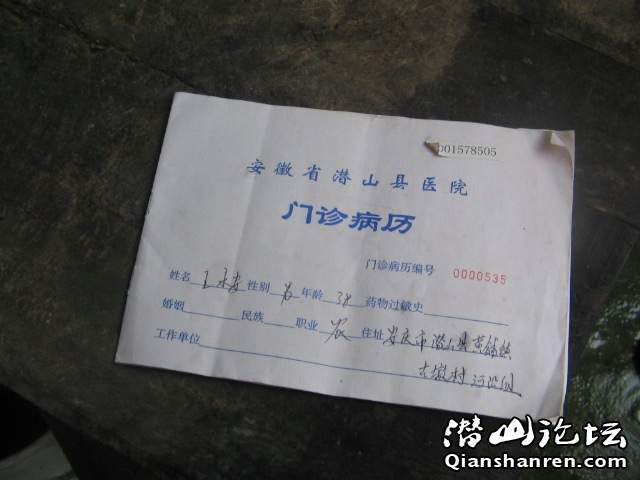 D01578505
安徽省潜山县医院
门诊病历
门诊病历编号 0000535
姓名 王 性别 年龄 38 药物过敏史
婚姻 民族 职业 农 住址 安庆市潜山县黄铺镇
工作单位 村
潜山论坛
Qianshanren.com